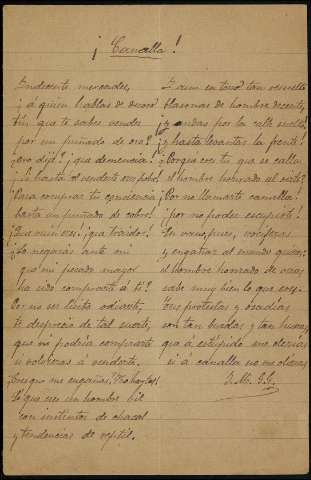 ¡Canalla!
Indecente mercader,
¿á quien hablas de decoro
tú que te sabes vender
por un puñado de oro?
¿oro dije? ¡que demencia!
¡Si hasta al venderte eres pobre!
Para comprar tu conciencia
basta un puñado de cobre!
¡Que ruin eres! ¡que traidor!
¿Lo negarás ante mí
que mi pecado mayor
ha sido comprarte á tí?
Por no ser lícito odiarte,
te desprecio de tal suerte,
que no podría comprarte
si volvieras á venderte.
¿Crees que me engañas? ¡No hay tal!
Sé que eres un hombre vil
con instintos de chacal
y tendencias de reptil.
Y aun en tono tan resuelto
blasonas de hombre decente,
¡y andas por la calle suelto!
¡y hasta levantas la frente!
¿Porque eres tu que se calla
el hombre honrado al verte?
¡Por no llamarte canalla!
¡por no poder escupirte!
En vano, pues, vociferas
y engañar al mundo quieres;
el hombre honrado de veras
sabe muy bien lo que eres.
Tus protestas y osadías
son tan burdas y tan huecas,
que á estúpido me olerías
si á canalla no me olieras